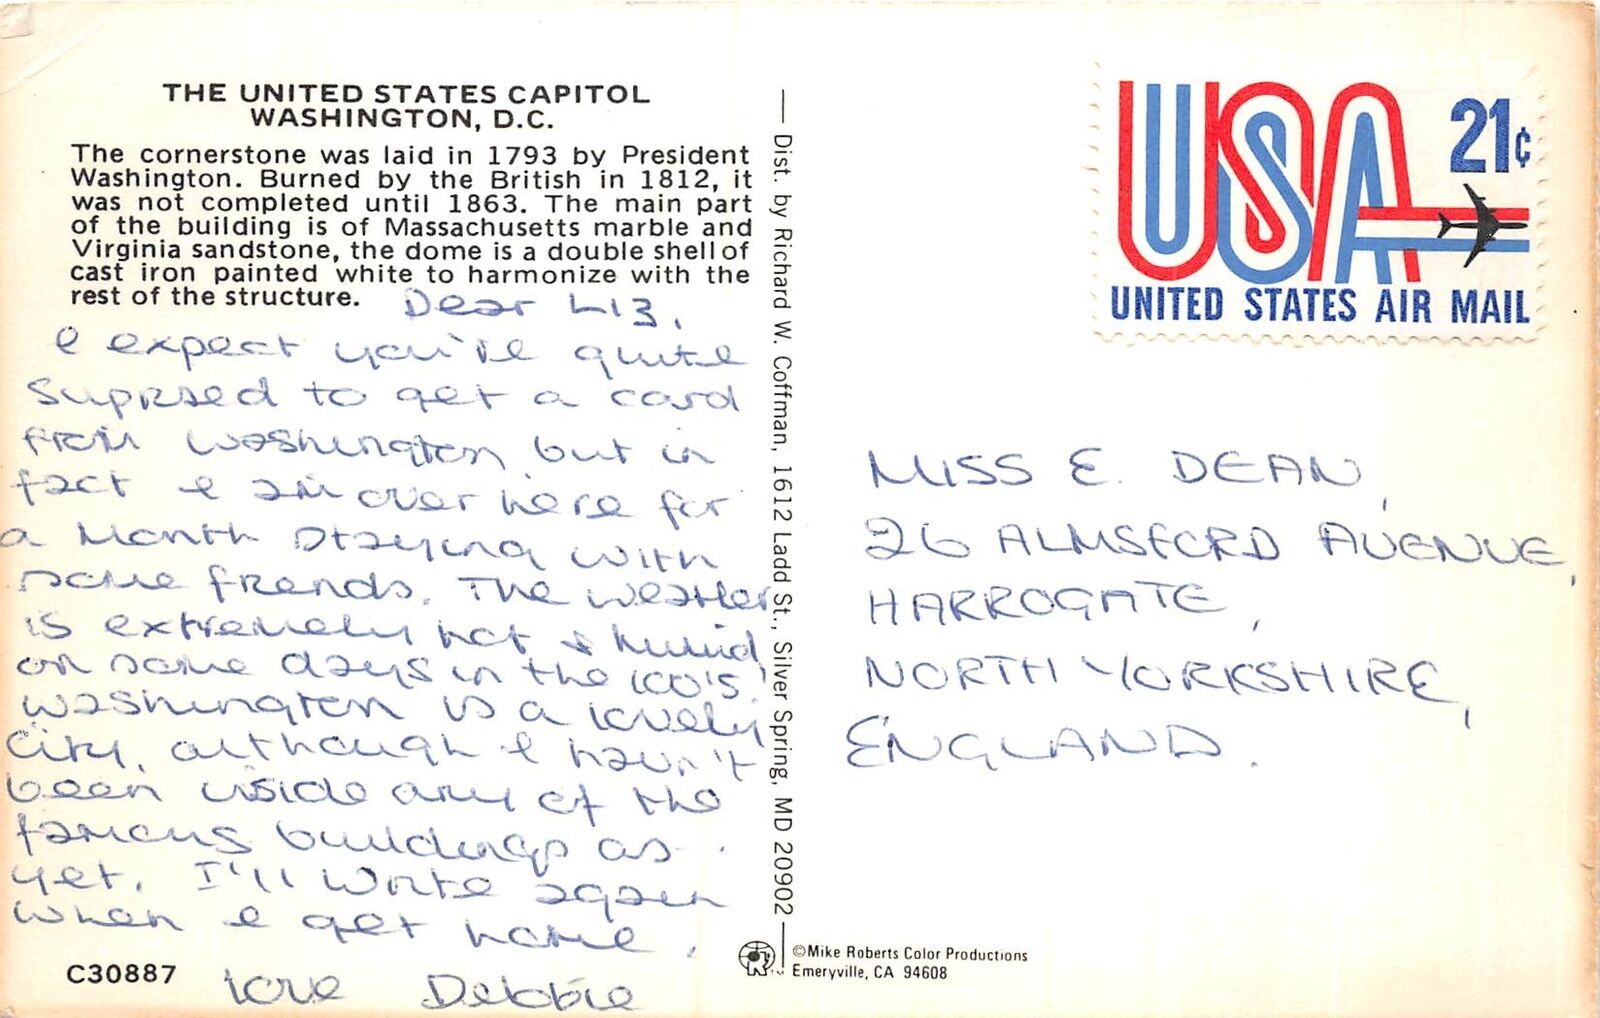 THE UNITED STATES CAPITOL
WASHINGTON, D.C.
The cornerstone was laid in 1793 by President
Washington. Burned by the British in 1812, it
was not completed until 1863. The main part
of the building is of Massachusetts marble and
Virginia sandstone, the dome is a double shell of
cast iron painted white to harmonize with the
rest of the structure.
Dear Liz,
I expect you've quite
suprised to get a card
from Washington but in
fact I am over here for
a month staying with
some friends. The weather
is extremely hot & humid,
on some days in the 100's.
Washington is a lovely
city, although I haven't
been inside any of the
famous buildings as
yet. I'll write again
when I get home.
love Debbie
C30887
Dist. by Richard W. Coffman, 1612 Ladd St., Silver Spring, MD 20902
©Mike Roberts Color Productions
Emeryville, CA 94608
USA 21¢
UNITED STATES AIR MAIL
MISS E. DEAN,
26 ALMSFORD AVENUE,
HARROGATE,
NORTH YORKSHIRE,
ENGLAND.